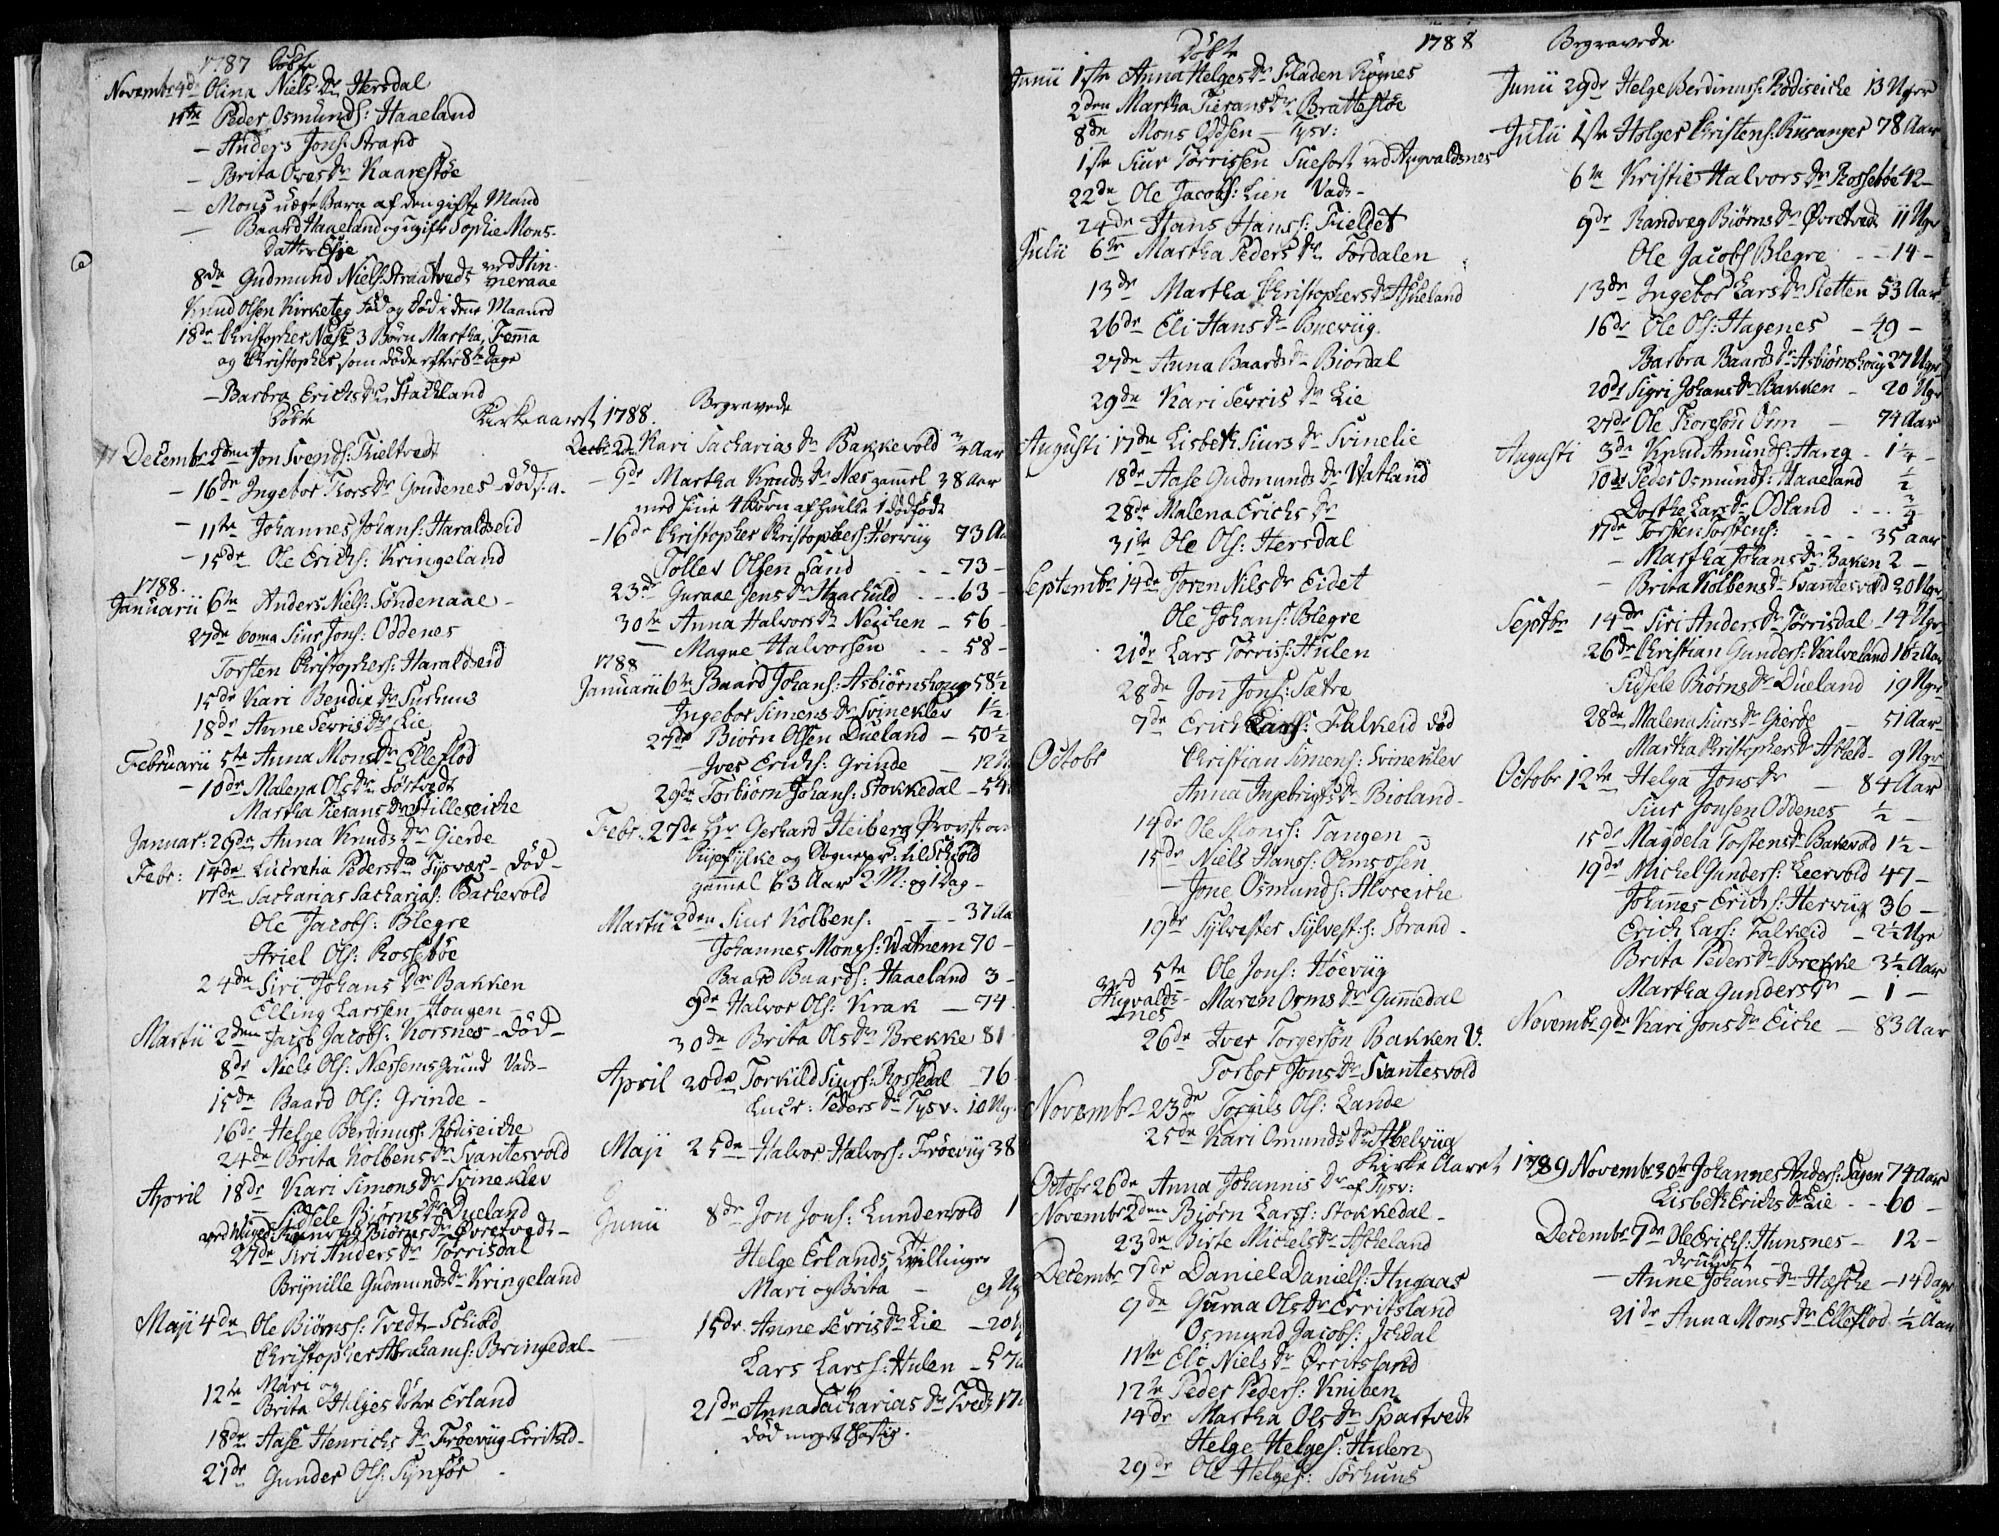 1787 Døbte
Novembr 4de Olina Niels Dr Hersdal
11te Peder Osmunds: Haaeland
– Anders Jons: Strand
– Brita Oves Dr Kaarestøe
– Mons uægte Barn af den gifte Mand
– Baard Haaeland og ugifte Sophie Mons-
Datter Eye
8de Gudmund Niels: Straatvedt ved Stin-
neraae
Knud Olsen Kirketeg fød og død i denne Maaned
18de Christopher Næss 3 Børn Martha, Femma
og Christopher, som døde efter 8te Dage
– Barbra Erichs Dr Stakland
Døbte
Kirkeaaret 1788.
Decembr 2den Jon Svends: Tieltvedt
– 16de Ingebor Thors Dr Grudenes – død: 9.
– 11te Johannes Johans: Haraldseid
– 15de Ole Erichs: Kringeland
1788.
Januarii 6te Anders Niels: Søndenaae –
27de Siur Jons: Oddenes
Torsten Christophers: Haraldseid
15de Kari Bendix Dr Surhuus
18de Anne Sevris Dr Lie
Februarii 5te Anna Mons Dr Elleflod
– 10de Malena Ols Dr Sørtvedt
Martha Tierans Dr Hilleseiche
Januar: 26de Anna Knuds Dr Gierde
Febr: 14de Lucretia Peders Dr Tysvær – død –
17de Sacharias Sacharias: Backevold
Ole Jacobs: Blegre
Ariel Ols: Rossebøe
24de Siri Johans Dr Bakken
Elling Larssen Hougen –
Martii 2den Jacob Jacobs: Korsnes – død –
8de Niels Ols: Næssemsgrund Vads –
15de Baard Ols: Grinde –
16de Helge Berdinus: Rødiseiche
24de Brita Kolbens Dr Svantesvold
April 18de Kari Simons Dr Svineklev
Sidsele Biørns Dr Dueland
Biørns Dr Øvretvedt –
27de Siri Anders Dr Tørrisdal
Brynille Gudmunds Dr Kringeland
Maji 4de Ole Biørns: Tvedt – Schiold
Christopher Abrahams: Bringedal –
12te Mari og
Brita Helges Døtre Erland
18de Aase Henrichs Dr Frøevig Erritsd –
21de Gunder Ols: Synfør –
Begravede
Decbr 2de Kari Sacharias Dr Bakkevold ¾ Aar
– 9de Martha Knuds Dr Næs gammel 38 Aar
med sine 4 Børn af hvilke 1 dødfødt
– 16de Christopher Christophers: Hervig 73 Aar
Tollev Olsen Sand – – – 73 –
23de Guraae Jens Dr Haachuld – – 63 –
30te Anna Halvors Dr Neichen – 56 –
– Magne Halvorsen – – 58 –
1788
Januarii 6te Baard Johans: Asbiørnshoug 58½
Ingebor Simens Dr Svinekler 1½
27de Biørn Olsen Dueland – 50½
– Jves Erichs: Grinde – 12
29de Torbiørn Johans: Stokkedal – 54
Febr. 27de Hr Gerhard Heiberg Provst over
Ryefylke og Sognepr. til Schiold
gammel 63 Aar 2 M: og 1 Dag –
Martii 2den Siur Kolbens: – – – 37 Aar
Johannes Mons: Vatnem 70 –
Baard Baards: Haaeland 3 –
9de Halvor Ols: Krak – 74 –
30de Brita Ols Dr Brekke 81 –
April 20de Torkild Siurs: Rossedal – 76
Lucr: Peders Dr Tysv: 10 Ug.
Maji 25de Halvor Halvors: Frøevig 38
Junii 8de Jon Jons: Lundervold 1
Helge Erlands Tvillinger
Mari og Brita – 9 Ug
15de Anne Sevris Dr Lie – 20
Lars Lars: Hulen – 57
21de Anna Sacharias Dr Tvedt 17
død meget hastig.
Døbte 1788
Junii 1ste Anna Helges Dr Fladen Røgnes
2den Martha Tierans Dr Brattestøe
8de Mons Odsen – Tysv:
1ste Siur Tørrissen ved Augvaldsnes
22de Ole Jacobs: Lien Vads –
24de Hans Hans: Fieldet
Julii 6te Martha Peders Dr Førdalen
13de Martha Christophers Dr Askeland
26de Eli Hans Dr Bneviig.
27de Anna Baards Dr Biordal
29de Kari Sevris Dr Lie
Augusti 17de Lisbeth Siurs Dr Svinelie
18de Aase Gudmunds Dr Vatland
28de Malena Erichs Dr
31te Ole Ols: Hersdal
Septembr 14de Joren Nils Dr Eidet
Ole Johans: Blegre
21de Lars Tørris: Hulen
28de Jon Jons: Sætre
7de Erich Lars: Falkeid død
Octobr Christian Simens: Svinekler
Anna Ingebrigts Dr Bioland –
14de Ole Mons: Tangen –
15de Niels Hans: Olmsosen
– Jone Osmunds: Alvseiche
19de Sylvester Sylvest:s: Strand –
ved Augvalds-
nes
5te Ole Jons: Høeviig
Maren Orms Dr Gunnedal
26de Iver Torgersøn Bakken V.
Torbor Jons Dr Svantesvold
Novembr 23de Torgils Ols: Lande
25de Kari Omunds Dr Abelviig
Kirke Aaret 1789
Octobr 26de Anna Johannis Dr af Tysv:
Novembr 2den Biørn Lars: Stokkedal –
23de Birte Michels Dr Askeland
Decembr 7de Daniel Daniels: Hugaas
9de Guraa Ols Dr Erritsland
Osmund Jacobs: Isdal
11te Else Niels Dr Ørritsland
12te Peder Peders: Kniben
14de Martha Ols Dr Spartvedt
Helge Helges: Hulen
29de Ole Helges: Sørhuus
Begravede
Junii 29de Helge Berdinus: Rødiseiche 13 Uger
Julii 1ste Holger Christens: Rusanger 78 Aar
6te Kristie Halvors Dr Rossebøe 42 –
9de Randveg Biørns Dr Øvretvedt 11 Uger
Ole Jacobs Blegre – – 14 –
13de Ingebor Lars Dr Sletten 53 Aar
16de Ole Ols: Hagenes – 49 –
Barbra Baards Dr Asbiørnshoug 27 Uger
20de Sigri Johans Dr Bakken – 20 Uger
27de Ole Thoresøn Orm – 74 Aar
Augusti 3de Knud Amunds: Haug – 1¼ –
10de Peder Osmunds: Haaeland ½
Dorthe Lars Dr Odland – – ¾
17de Torsten Torstens: – – – 35 aar
– Martha Johans Dr Baken 2 –
– Brita Kolbens Dr Svantesvold 20 Uger
Septbr 14de Siri Anders Dr Tørrisdal 14 Uger
26de Christian Gunders: Kalveland 16½ Aar
Sidsele Biørns Dr Dueland 19 Uger
28de Malena Siurs Dr Gierde – 51 Aar
Martha Christophers Dr Askeld – 9 Uger
Octobr 12te Helga Jons Dr – 84 Aar
Siur Jonsen Oddenes ½ –
15de Magdela Torstens Dr Bakevold 1½ –
19de Michel Gunders: Leervold 47 –
Johannes Erichs: Hervig 36 –
Erich Lars: Falkeid – 2½ Uge
Brita Peders Dr Brekke 3½ Aar
Martha Gunders Dr – 1 –
Novembr 9de Kari Jons Dr Eiche – 83 Aar
Novembr 30te Johannes Anders: Sagen 74 Aar
Lisbeth Erichs Dr Lie – – 60 –
Decembr 7de Ole Erichs: Hunsnes – 12 –
druknet
– Anne Johans Dr Hesche – 14 Dage
21de Anna Mons Dr Elleflod ½ Aar